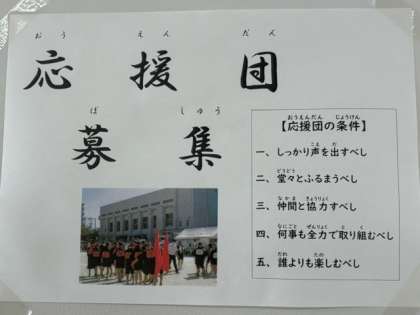 おうえんだん
応援団
ぼしゅう
募集
おうえんだん じょうけん
【応援団の条件】
こえ だ
一、しっかり声を出すべし
どうどう
二、堂々とふるまうべし
なかま きょうりょく
三、仲間と協力すべし
なにごと ぜんりょく と く
四、何事も全力で取り組むべし
だれ たの
五、誰よりも楽しむべし